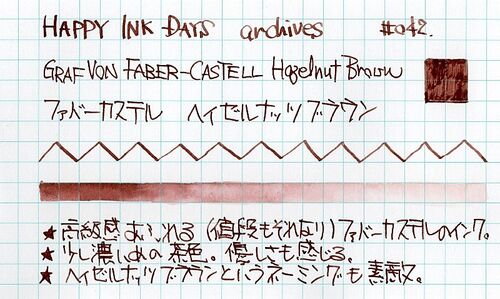 HAPPY INK DAYS archives #042.
GRAF VON FABER-CASTELL Hazelnut Brown
ファバーカステル ヘイゼルナッツブラウン
★高級感あふれる(値段もそれなり)ファバーカステルのインク。
★少し濃いめの茶色。優しさも感じる。
★ヘイゼルナッツブラウンというネーミングも素敵。